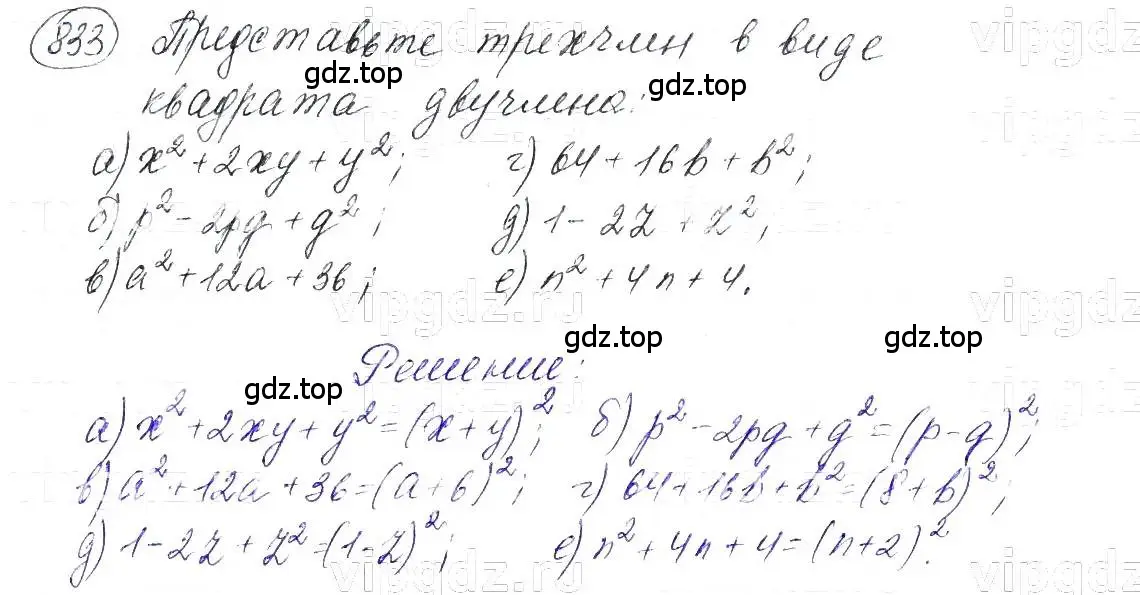 833 Представьте трехчлен в виде
gdz.top
квадрата двучлена:
gdz.top
а) x² + 2xy + y²; г) 64 + 16b + b²;
б) p² - 2pq + q²; д) 1 - 2z + z²;
в) a² + 12a + 36; е) n² + 4n + 4.
vipgdz.ru
gdz.top gdz.top
Решение:
gdz.top
а) x² + 2xy + y² = (x + y)²; б) p² - 2pq + q² = (p - q)²;
в) a² + 12a + 36 = (a + 6)²; г) 64 + 16b + b² = (8 + b)²;
д) 1 - 2z + z² = (1 - z)²; е) n² + 4n + 4 = (n + 2)².
vipgdz.ru